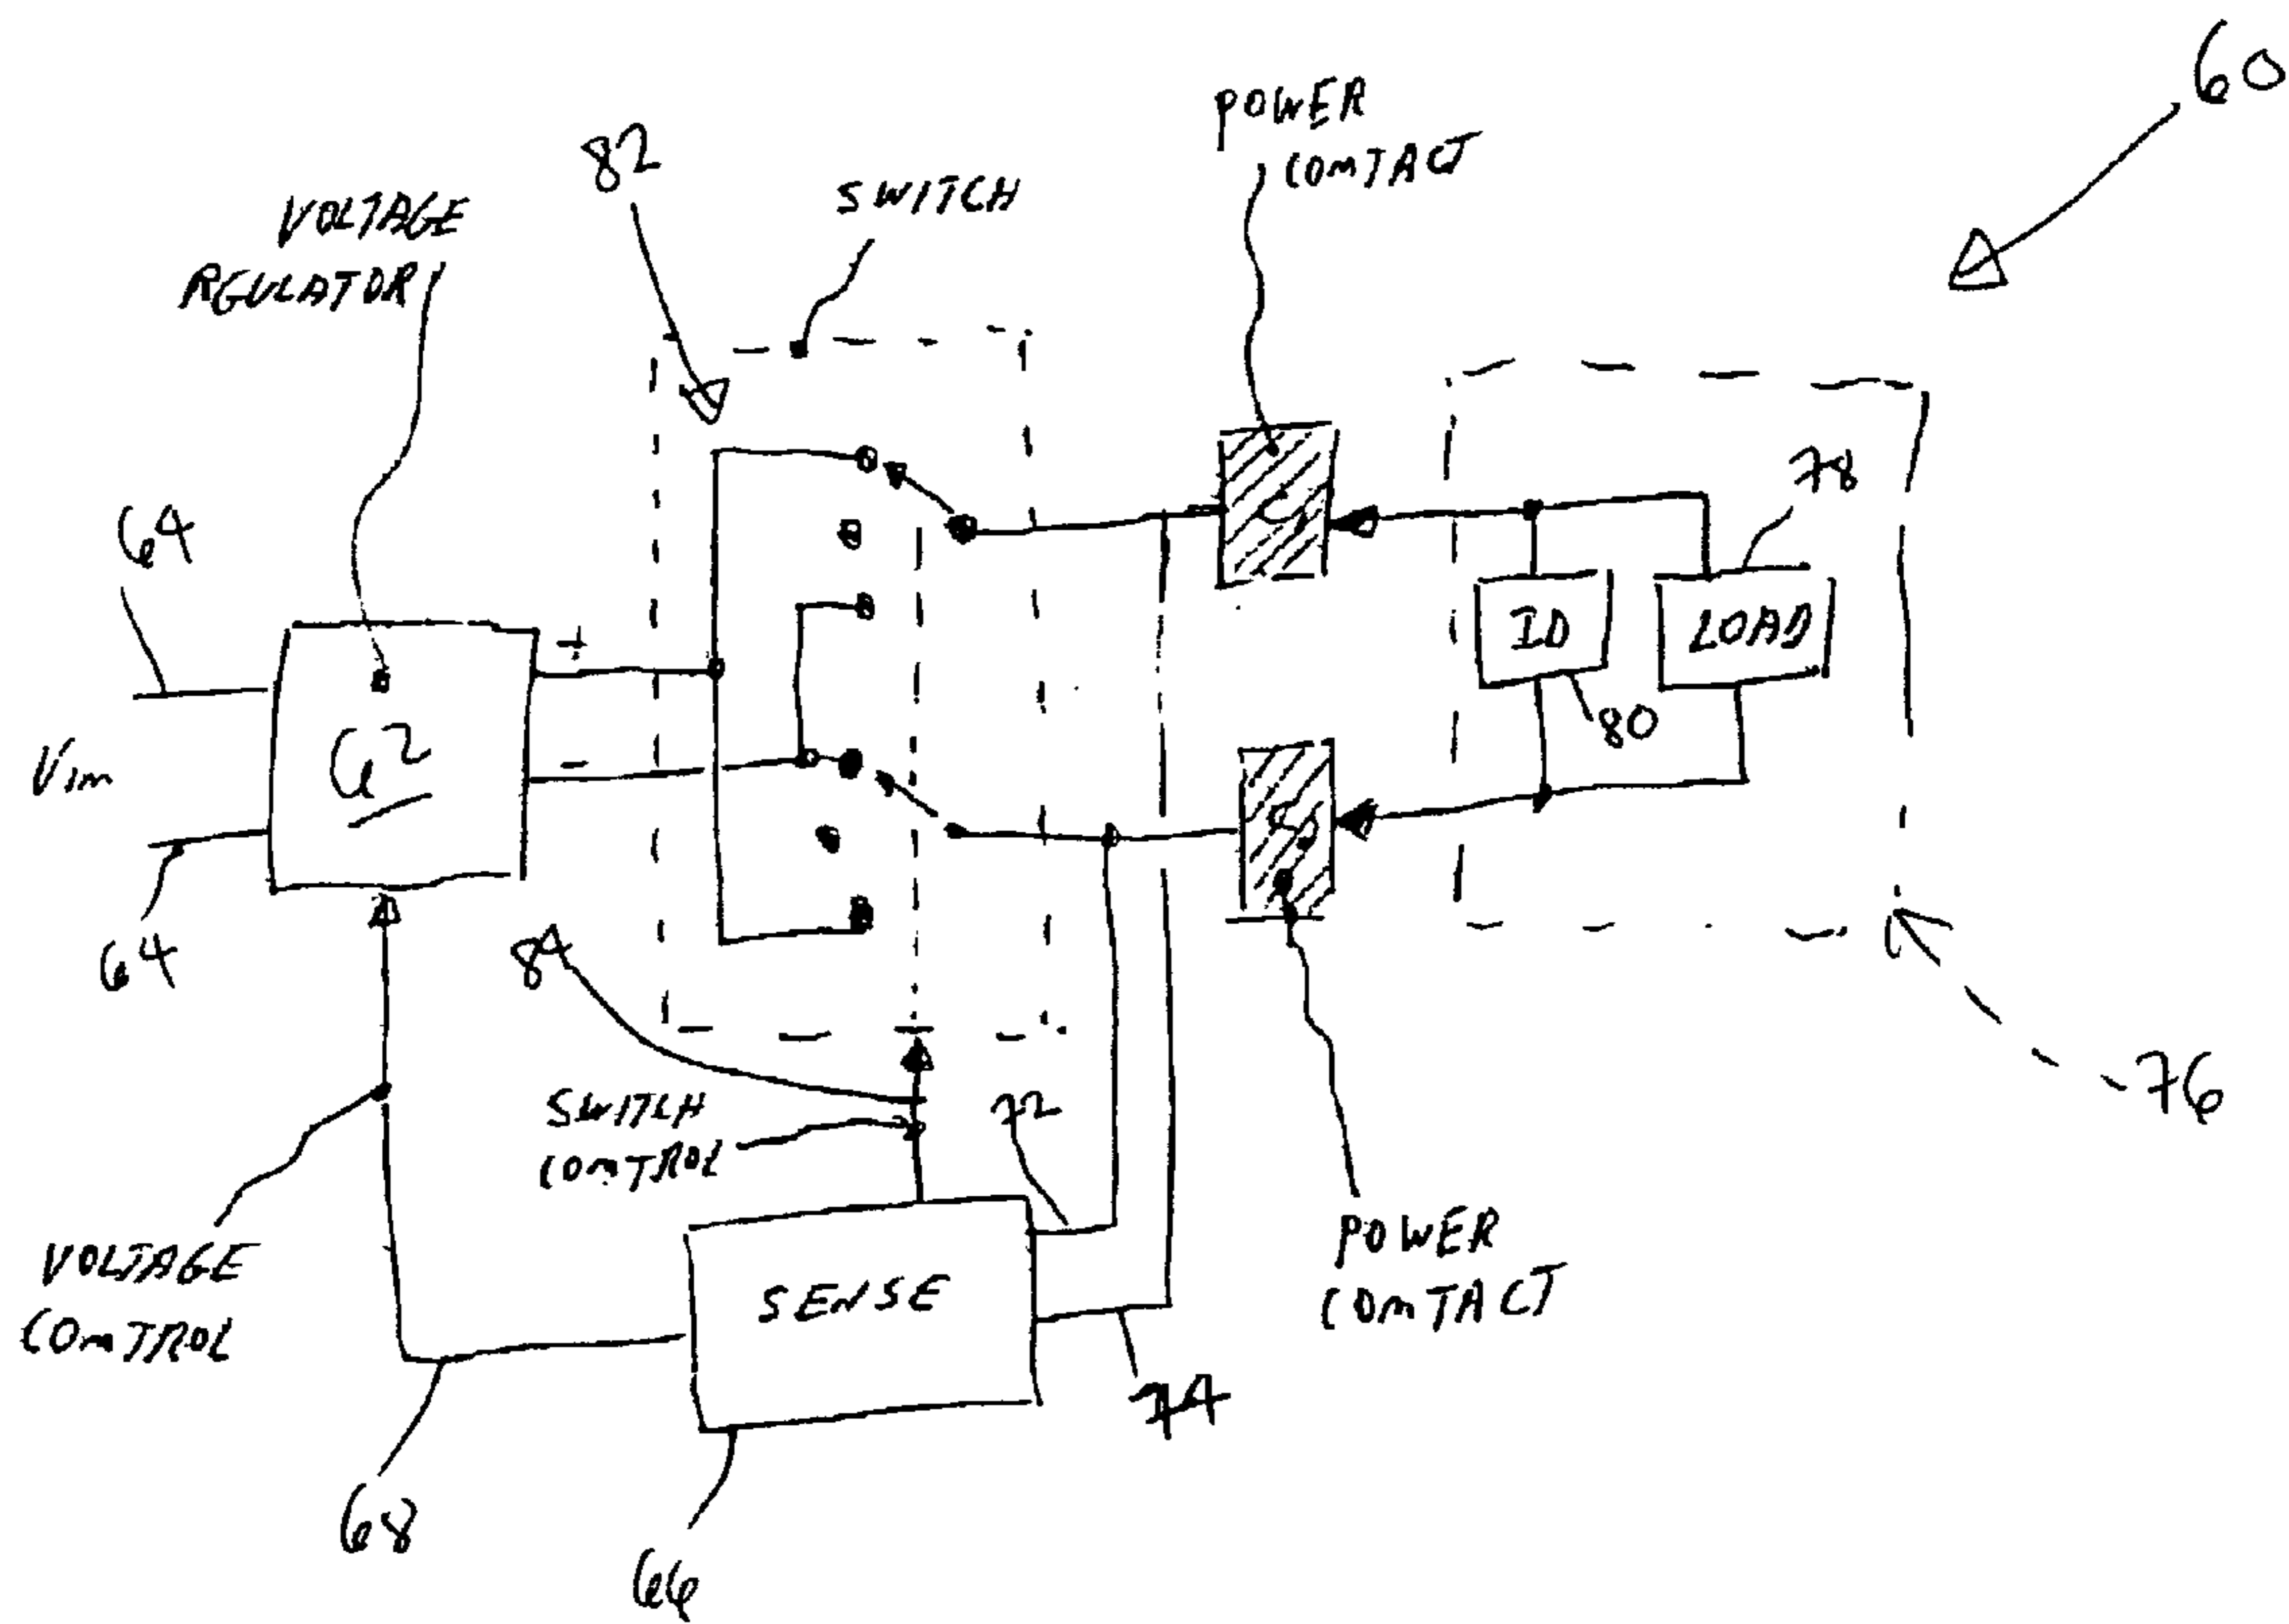 60
POWER
CONTACT
82
SWITCH
VOLTAGE
RGULATOR
78
64
+
ID
LOAD
80
62
-
Vin
64
84
76
SWITCH
CONTROL
72
POWER
CONTACT
VOLTAGE
CONTROL
SENSE
74
68
66